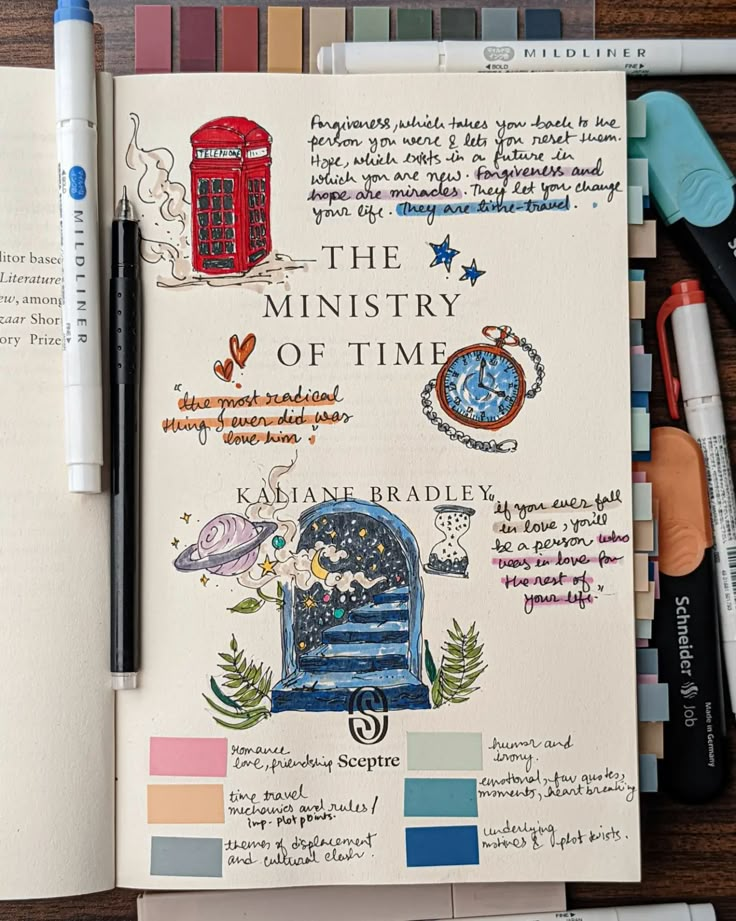 MILDLINER
BOLD
FINE
MILDLINER
Forgiveness, which takes you back to the
person you were & lets you reset them.
Hope, which exists in a future in
which you are new. Forgiveness and
hope are miracles. They let you change
your life. They are time-travel.
TELEPHONE
THE
MINISTRY
OF TIME
"the most radical
thing I ever did was
love him."
KALIANE BRADLEY
"if you ever fall
in love, you'll
be a person who
was in love for
the rest of
your life."
S
Sceptre
romance
love, friendship
time travel
mechanics and rules/
imp. plot points.
themes of displacement
and cultural clash.
humor and
irony.
emotional, fav quotes,
moments, heart breaking
underlying
motives & plot twists.
ditor based
Literature
ew, among
zaar Shor
ory Prize
Schneider
Job
Made in Germany